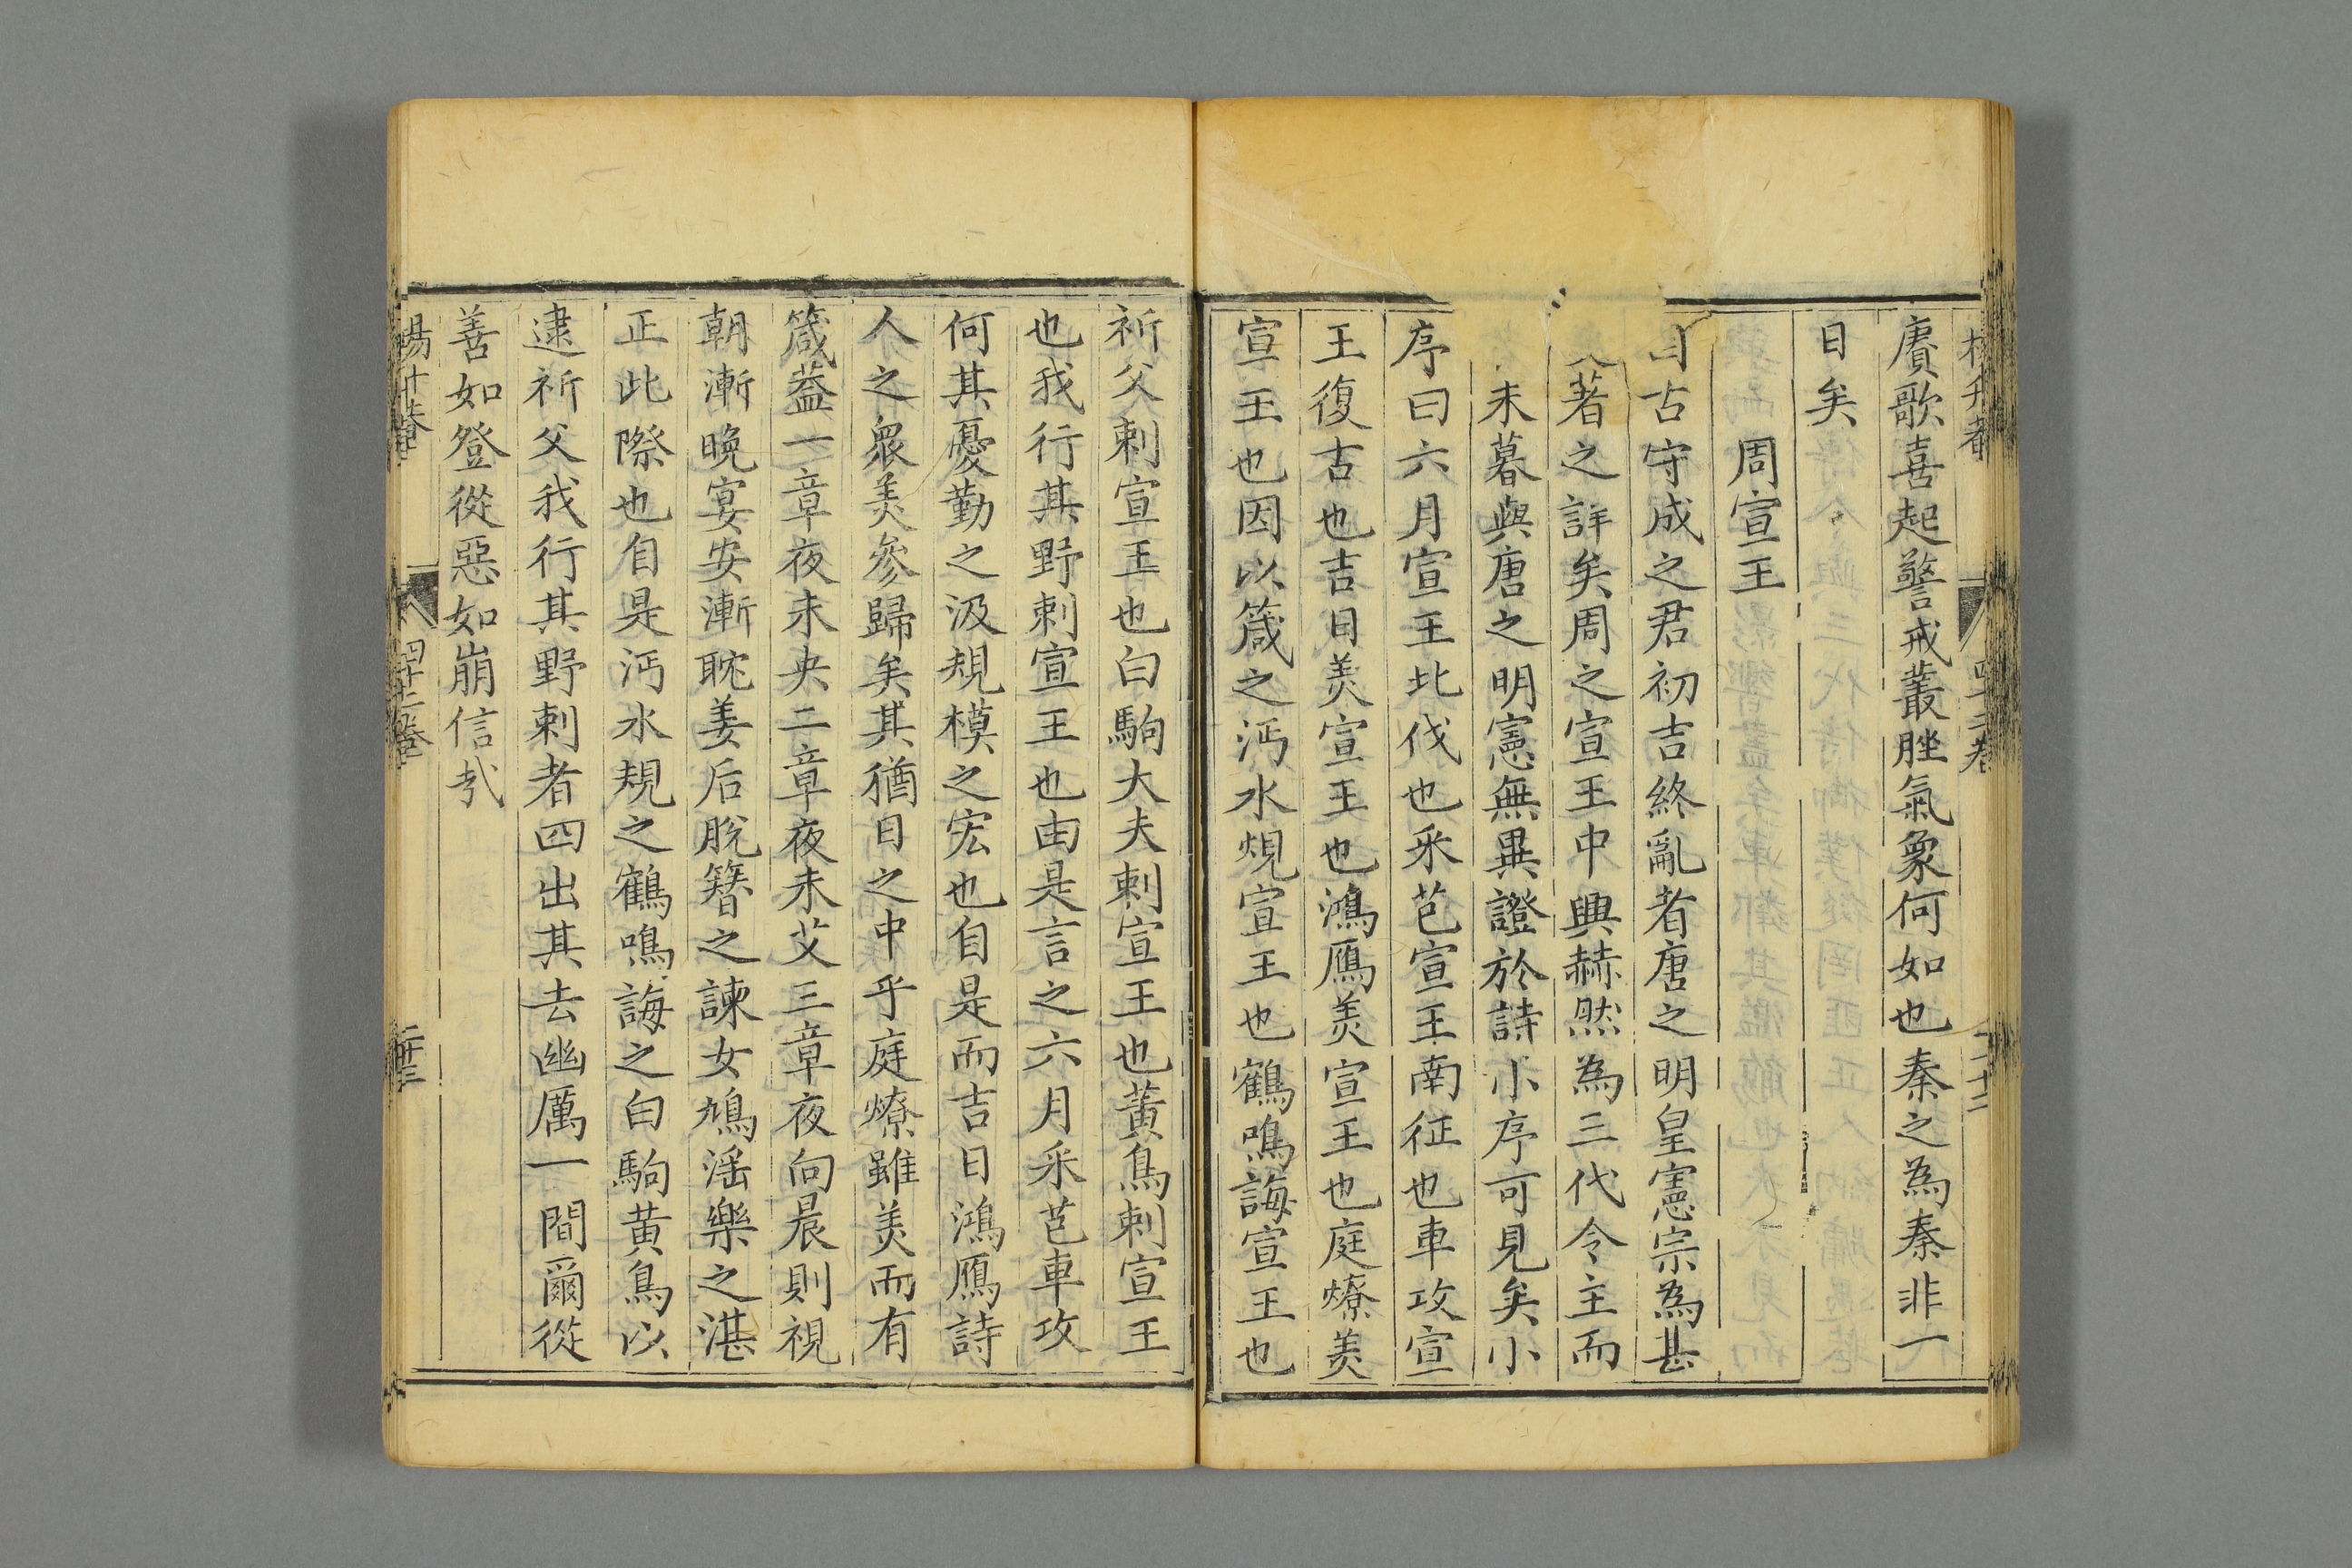 賡歌喜起警戒叢脞氣象何如也秦之為秦非一
日矣
周宣王
自古守成之君初吉終亂者唐之明皇憲宗為甚
著之詳矣周之宣王中興赫然為三代令主而
末暮與唐之明憲無異證於詩小序可見矣小
序曰六月宣王北伐也采芑宣王南征也車攻宣
王復古也吉日美宣王也鴻鴈美宣王也庭燎美
宣王也因以箴之沔水規宣王也鶴鳴誨宣王也
祈父刺宣王也白駒大夫刺宣王也黃鳥刺宣王
也我行其野刺宣王也由是言之六月采芑車攻
何其憂勤之汲規模之宏也自是而吉日鴻鴈詩
人之衆美參歸矣其猶日之中乎庭燎雖美而有
箴葢一章夜未央二章夜未艾三章夜向晨則視
朝漸晚宴安漸耽姜后脫簪之諫女鳩滛樂之湛
正此際也自是沔水規之鶴鳴誨之白駒黃鳥以
逮祈父我行其野刺者四出其去幽厲一間爾從
善如登從惡如崩信㢤
四十二卷
二十三